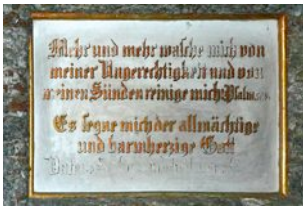 Mehr und mehr wasche mich von
meiner Ungerechtigkeit und von
meinen Sünden reinige mich Psalm
Es segne mich der allmächtige
und barmherzige Gott